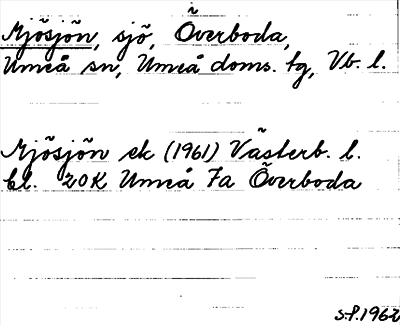 Mjösjön, sjö, Överboda,
Umeå sn, Umeå doms. tg, Vb. l.
Mjösjön ek (1961) Västerb. l.
bl. 20K Umeå 7a Överboda
S.P. 1967